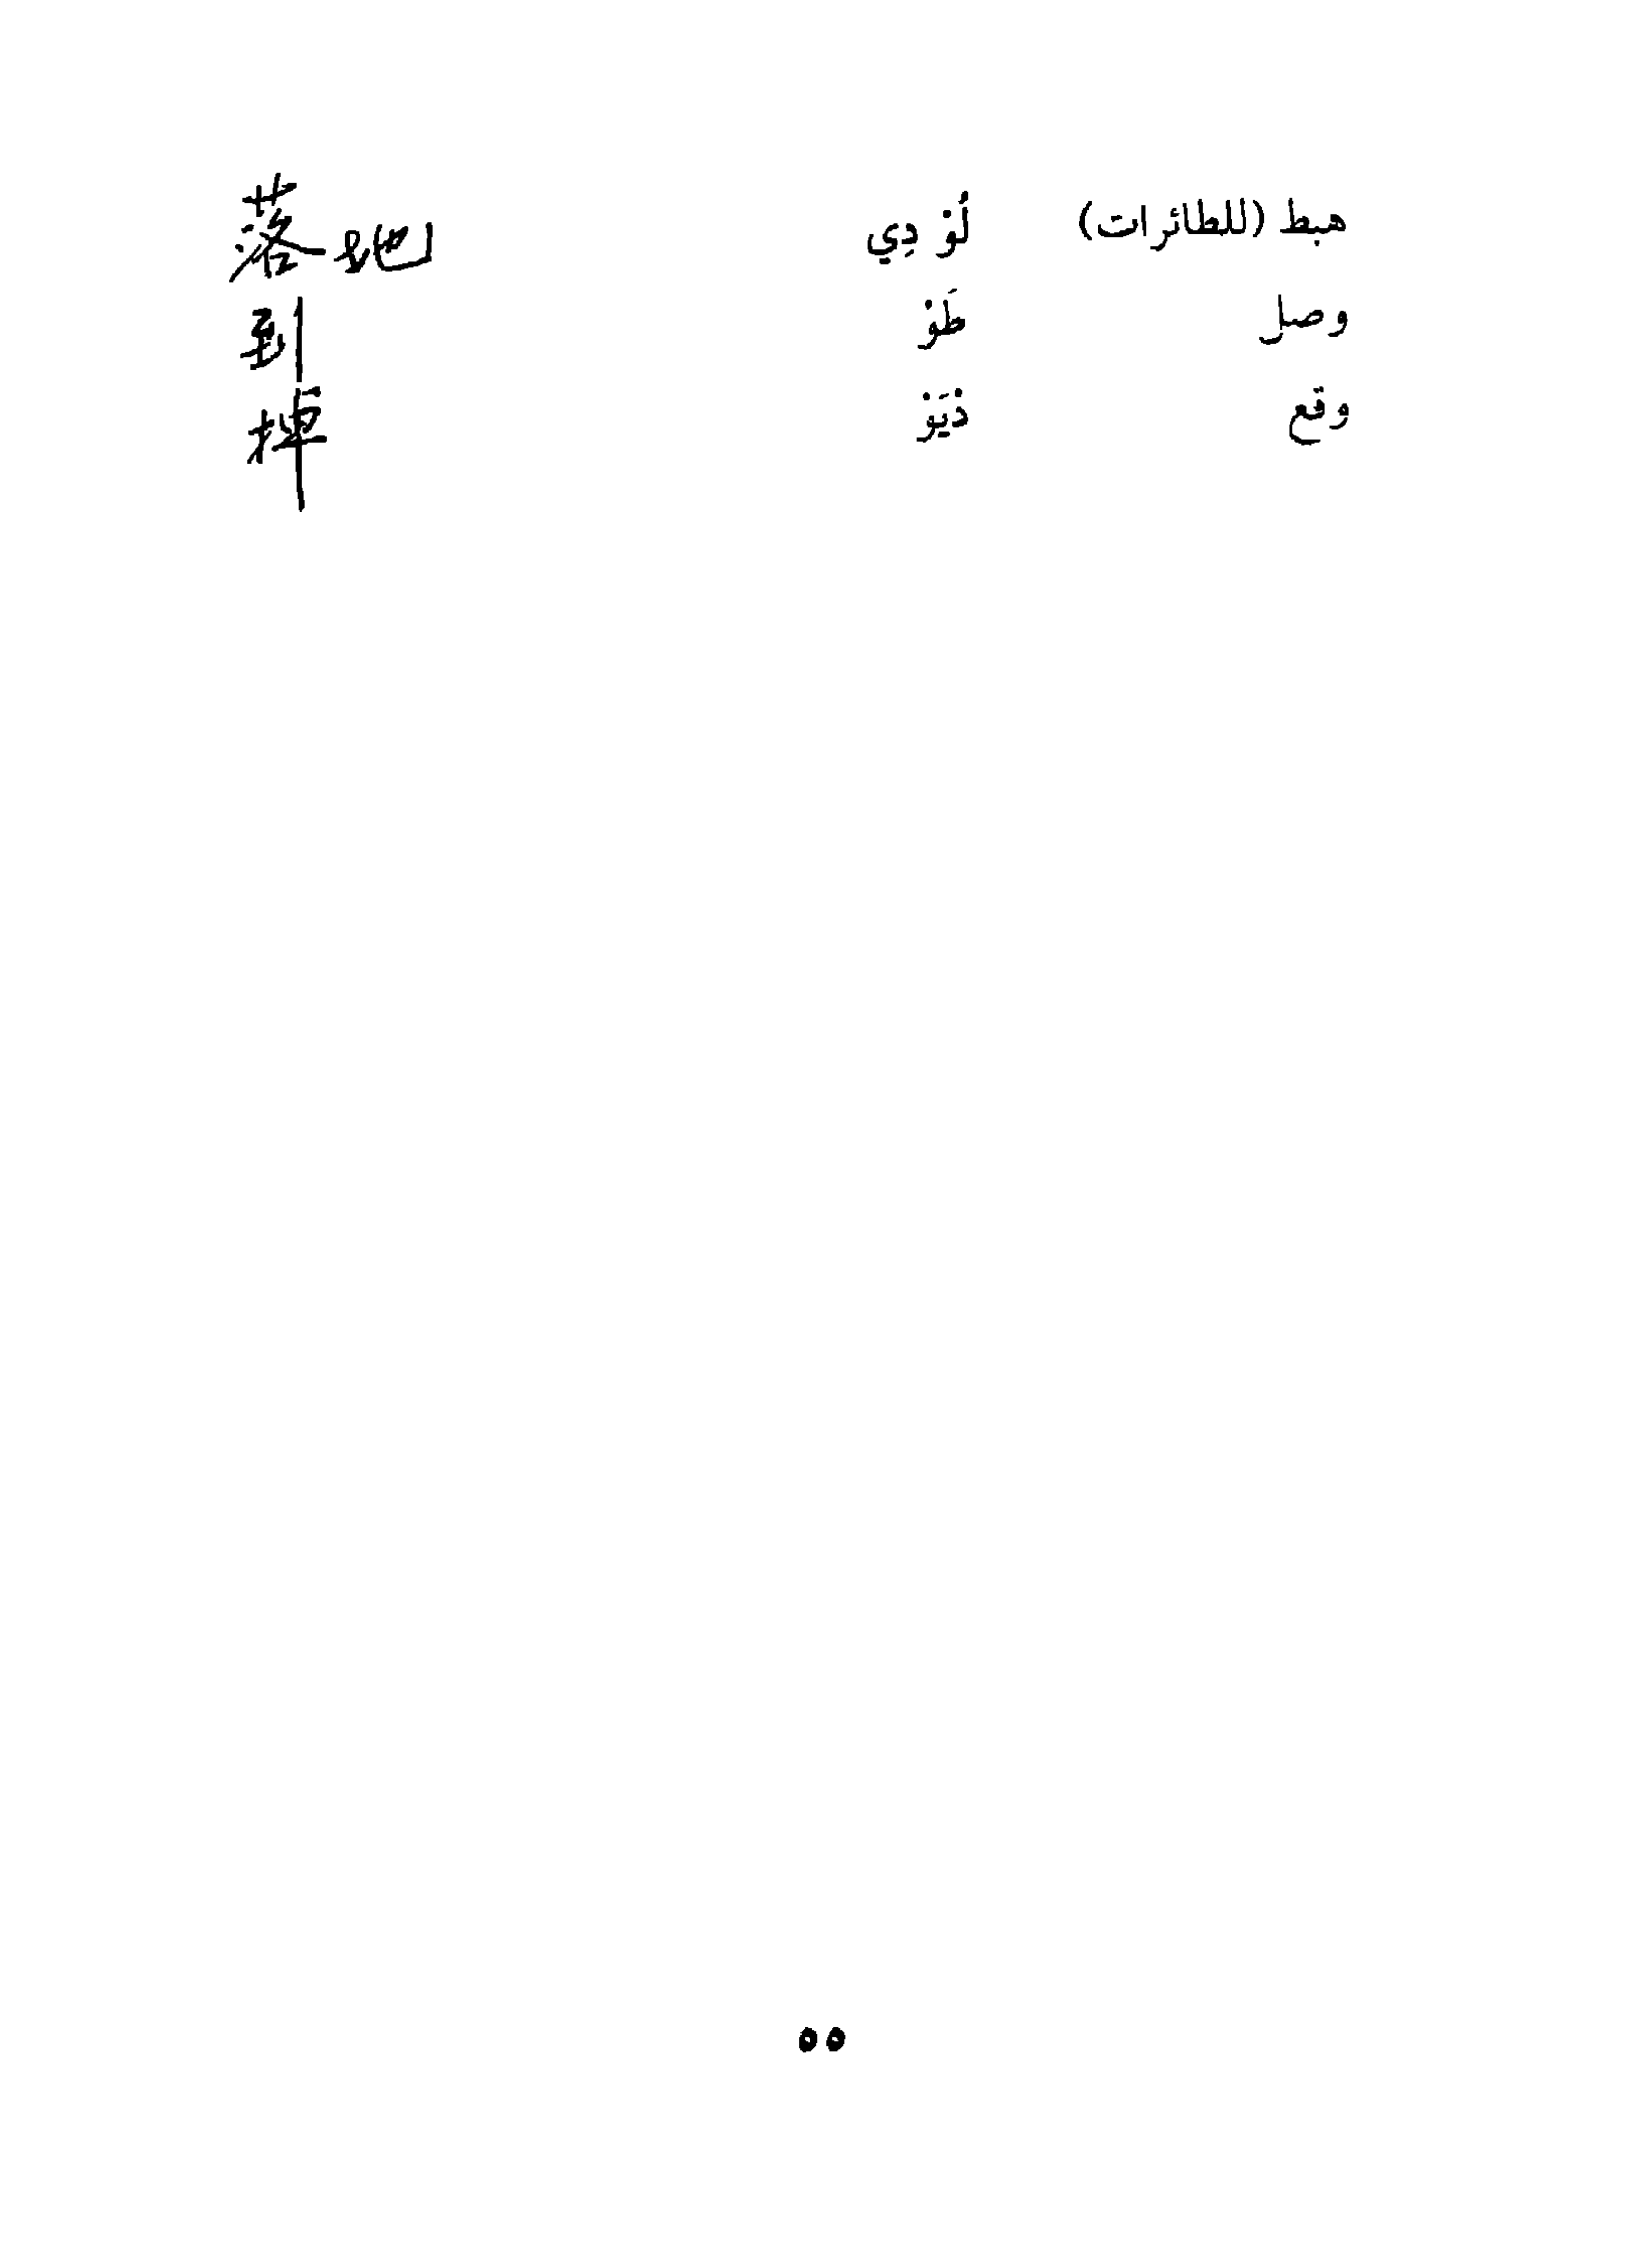 هبط (للطائرات) لُوْ دِي 落地
وصل طَوْ 到
وقع دْيَوْ 掉
٥٥